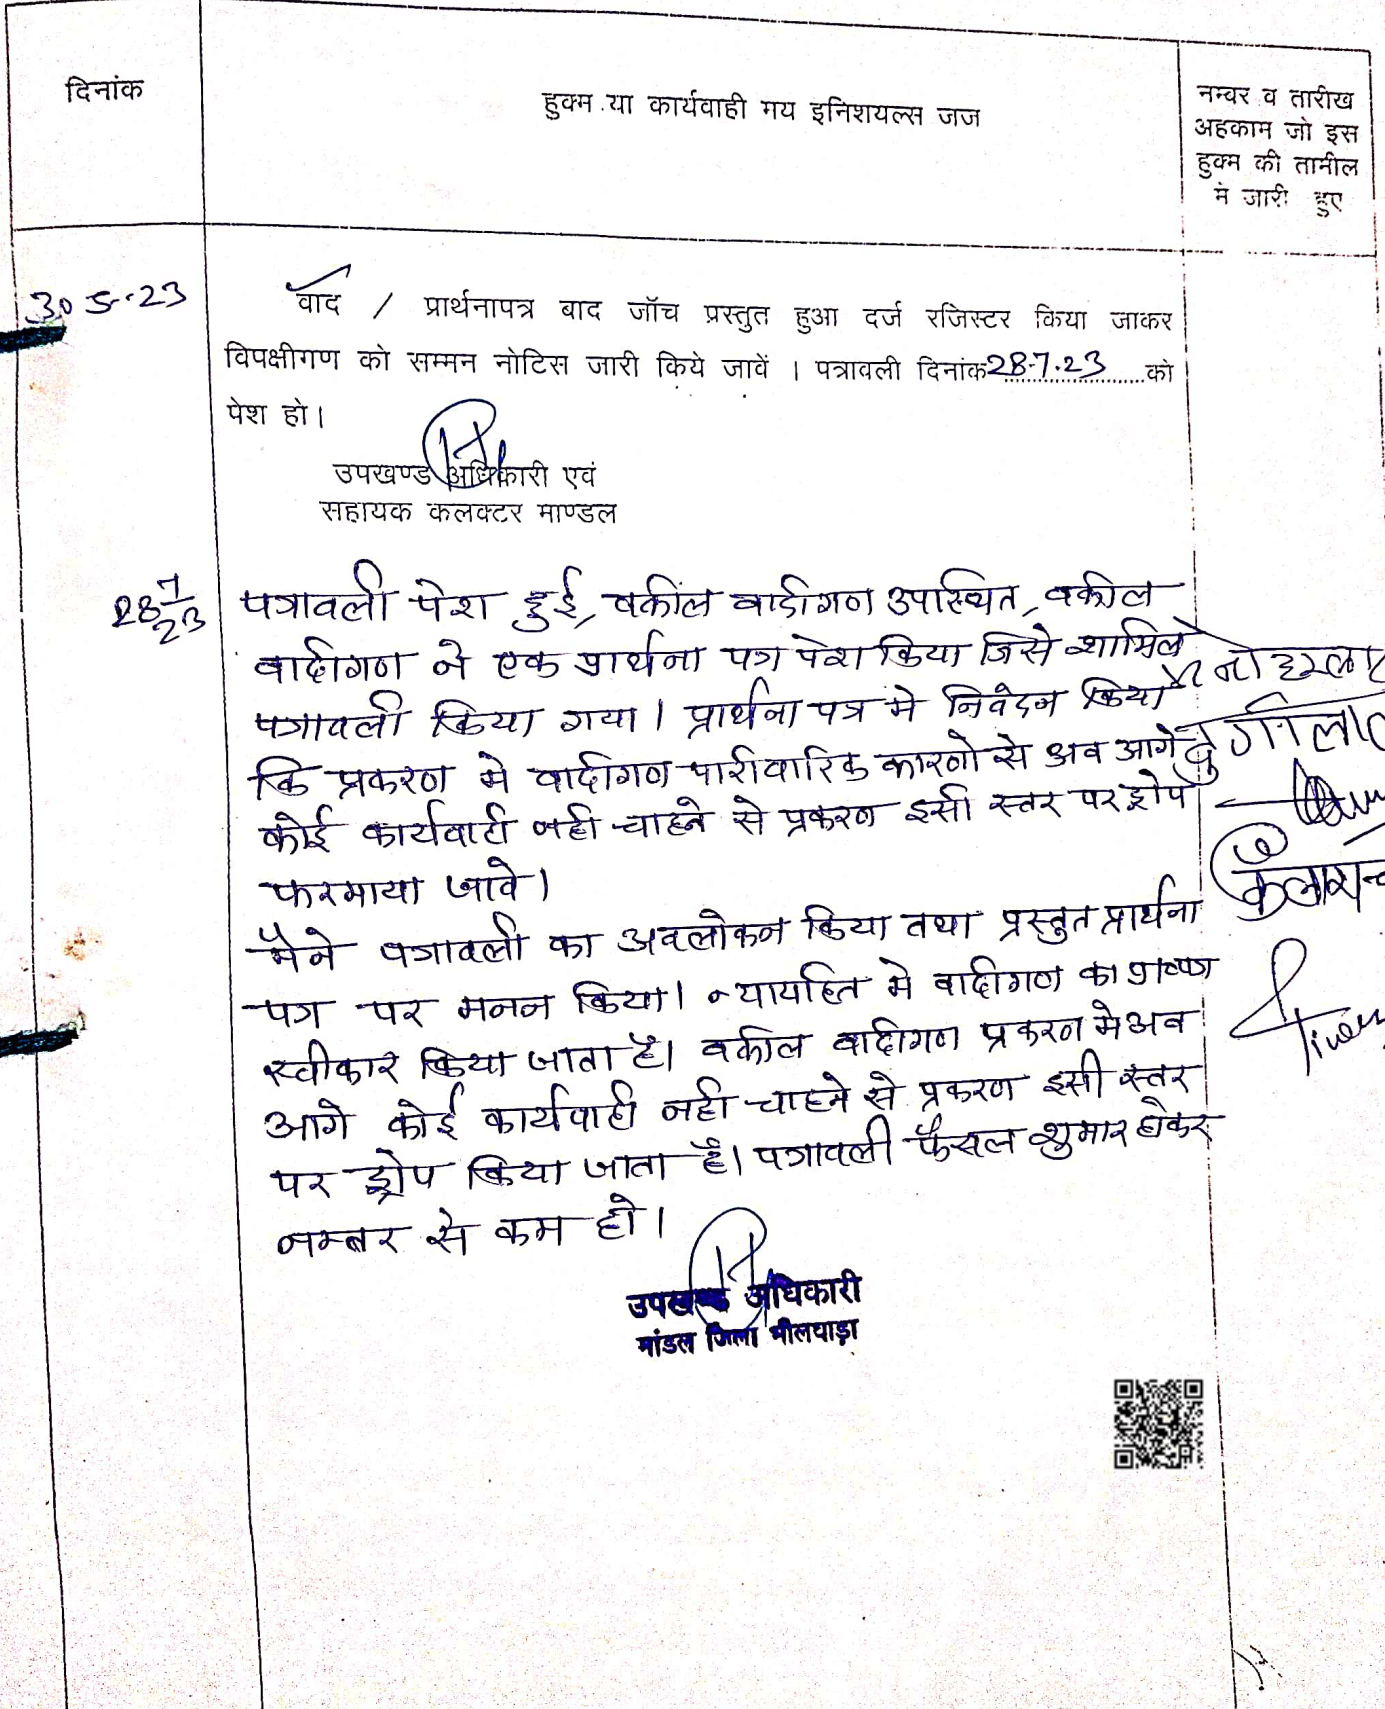 दिनांक
हुक्म या कार्यवाही मय इनिशयल्स जज
नम्बर व तारीख
अहकाम जो इस
हुक्म की तामील
में जारी हुए
30-5-23
वाद / प्रार्थनापत्र बाद जॉच प्रस्तुत हुआ दर्ज रजिस्टर किया जाकर
विपक्षीगण को सम्मन नोटिस जारी किये जावें । पत्रावली दिनांक 28-7-23 को
पेश हो।
उपखण्ड अधिकारी एवं
सहायक कलक्टर माण्डल
28/7/23
पत्रावली पेश हुई, वकील वादीगण उपस्थित, वकील
वादीगण ने एक प्रार्थना पत्र पेश किया जिसे शामिल
पत्रावली किया गया। प्रार्थना पत्र मे निवेदन किया
कि प्रकरण मे वादीगण पारीवारिक कारणो से अब आगे
कोई कार्यवाही नही चाहने से प्रकरण इसी स्तर पर ड्रोप
फरमाया जावे।
मैने पत्रावली का अवलोकन किया तथा प्रस्तुत प्रार्थना
पत्र पर मनन किया। न्यायहित मे वादीगण का
स्वीकार किया जाता है। वकील वादीगण प्रकरण मे अब
आगे कोई कार्यवाही नही चाहने से प्रकरण इसी स्तर
पर ड्रोप किया जाता है। पत्रावली फैसल शुमार होकर
नम्बर से कम हो।
उपखण्ड अधिकारी
मांडल जिला भीलवाड़ा